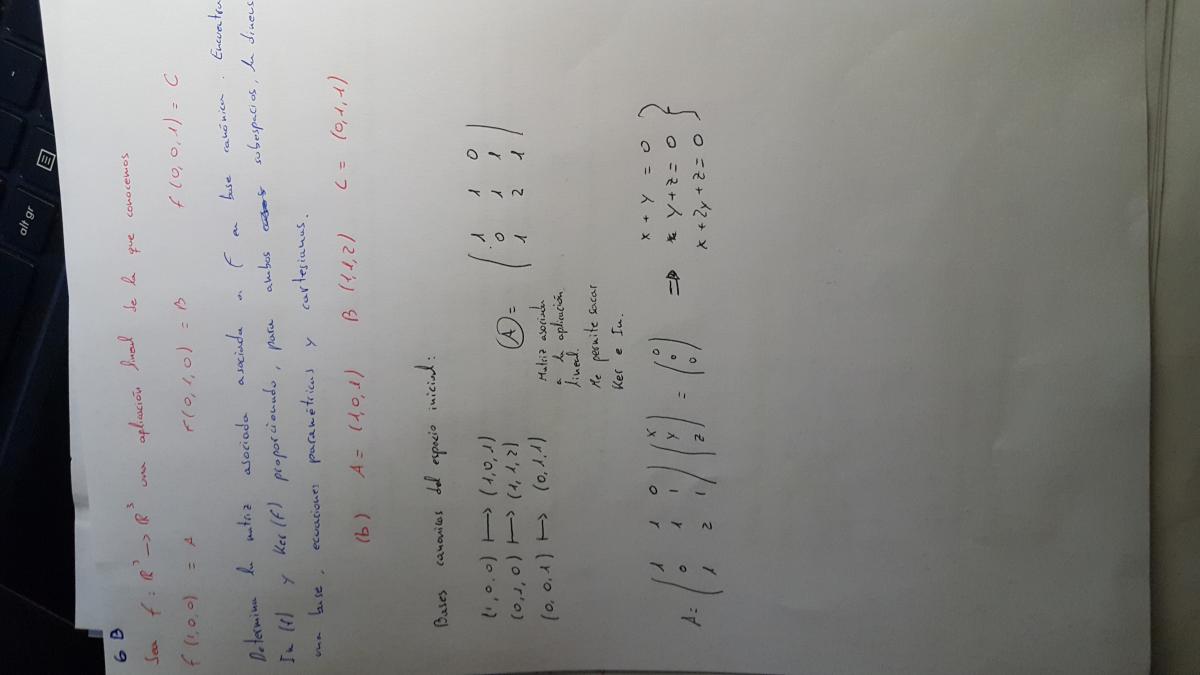 6 B
Sea f: R³ → R³ una aplicación lineal de la que conocemos
f(1,0,0) = A f(0,1,0) = B f(0,0,1) = C
Determina la matriz asociada asociada a f en base canónica. Encuentra
Im (f) y Ker(f) proporcionando, para ambos subespacios, la dimens
una base, ecuaciones paramétricas y cartesianas.
(b) A = (1,0,1) B (1,1,2) C = (0,1,1)
Bases canonicas del espacio inicial:
(1,0,0) ⟼ (1,0,1)
(0,1,0) ⟼ (1,1,2)
(0,0,1) ⟼ (0,1,1)
A =
1 1 0
0 1 1
1 2 1
Matriz asociada
a la aplicación
lineal.
Me permite sacar
Ker e Im.
A = (1 1 0) (x) (0) x + y = 0
(0 1 1) (y) = (0) ⇒ y + z = 0
(1 2 1) (z) (0) x + 2y + z = 0
alt gr